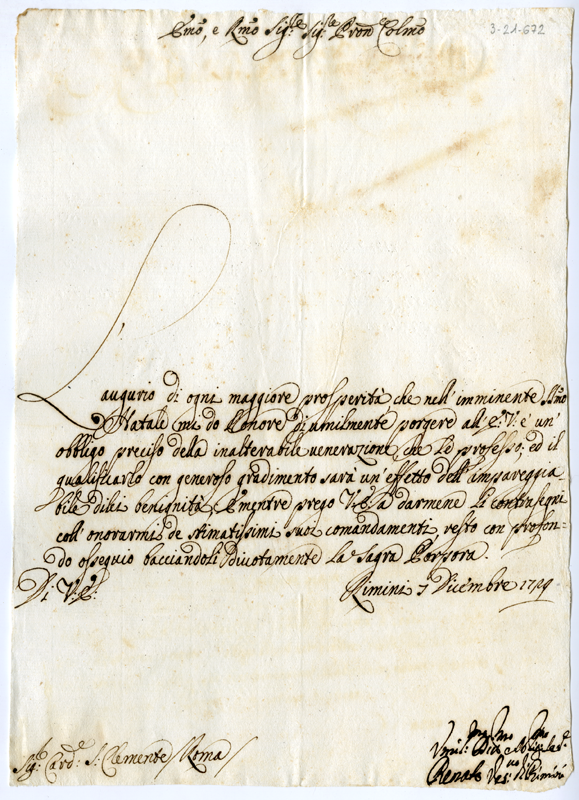 Emo, e Rmo Sig.re Sig.re Pron Colmo
3-21-672
L augurio di ogni maggiore prosperità che nell' imminente SSmo
Natale mi do l'onore di umilmente porgere all' E: V: é un'
obbligo preciso della inalterabile uenerazione, che Le professo, ed il
qualificarlo con generoso gradimento sarà un' effetto dell' impareggia-
bile di lei benignità; E mentre prego V. E. a darmene li contrasegni
coll' onorarmi de stimatissimi suoi comandamenti, resto con profon-
do ossequio bacciandoli diuotamente la Sagra Porpora.
Di V: E:
Rimini 7 Dicembre
Sig. Card. S. Clemente / Roma /
Renato Ves: di Rimini